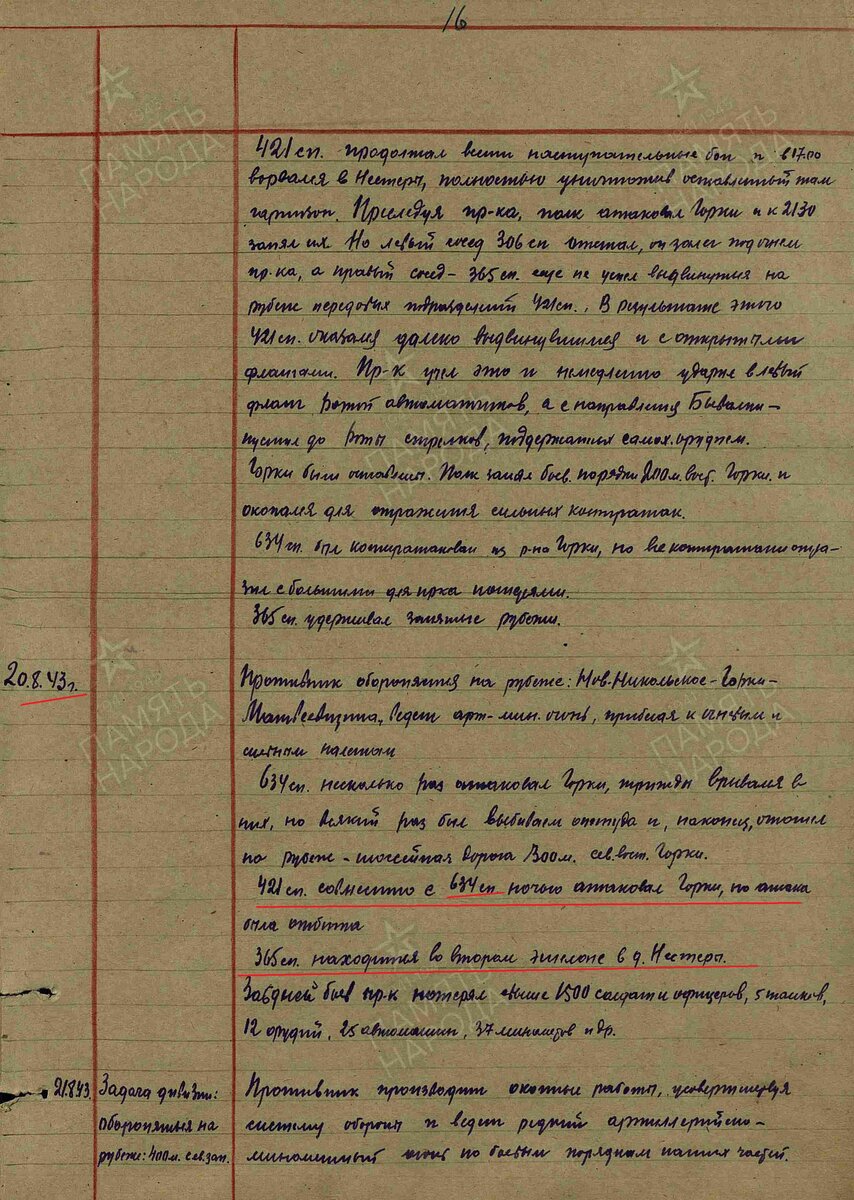 16
421 сп. продолжал вести наступательные бои и в 17.00
ворвался в Нестеры, полностью уничтожив оставленный там
гарнизон. Преследуя пр-ка, полк атаковал Горки и к 21 30
занял их. Но левый сосед 306 сп отстал, он залег под огнем
пр-ка, а правый сосед - 365 сп. еще не успел выдвинуться на
рубеж передовых подразделений 421 сп., В результате этого
421 сп. оказался далеко выдвинувшимся и с открытыми
флангами. Пр-к учел это и немедленно ударил в левый
фланг ротой автоматчиков, а с направления
пустил до роты стрелков, поддержанных самох. орудием.
Горки были оставлены. Полк занял боев. порядки 200 м. вост. Горки. и
окопался для отражения сильных контратак.
634 сп. был контратакован из р-на Горки, но все контратаки отра-
зил с большими для пр-ка потерями.
365 сп. удерживал занятые рубежи.
20.8.43 г.
Противник обороняется на рубеже: Нов. Никольское - Горки -
Матвеевщина, ведет арт-мин. огонь, прибегая к огневым и
налетам
634 сп. несколько раз атаковал Горки, трижды врывался в
них, но всякий раз был выбиваем оттуда и, наконец, отошел
на рубеж - шоссейная дорога 300 м. сев. вост. Горки.
421 сп. совместно с 634 сп ночью атаковал Горки, но атака
была отбита
365 сп. находится во втором эшелоне в д. Нестеры.
За 6 дней боев пр-к потерял свыше 1500 солдат и офицеров, 5 танков,
12 орудий, 25 автомашин, 37 минометов и др.
21.8.43.
Задача дивизии:
обороняться на
рубеже: 400 м. сев. зап.
Противник производит окопные работы, усовершенствуя
систему обороны и ведет редкий артиллерийско-
минометный огонь по боевым порядкам наших частей.
ПАМЯТЬ
НАРОДА
ПАМЯТЬ
НАРОДА
ПАМЯТЬ
НАРОДА
ПАМЯТЬ
НАРОДА